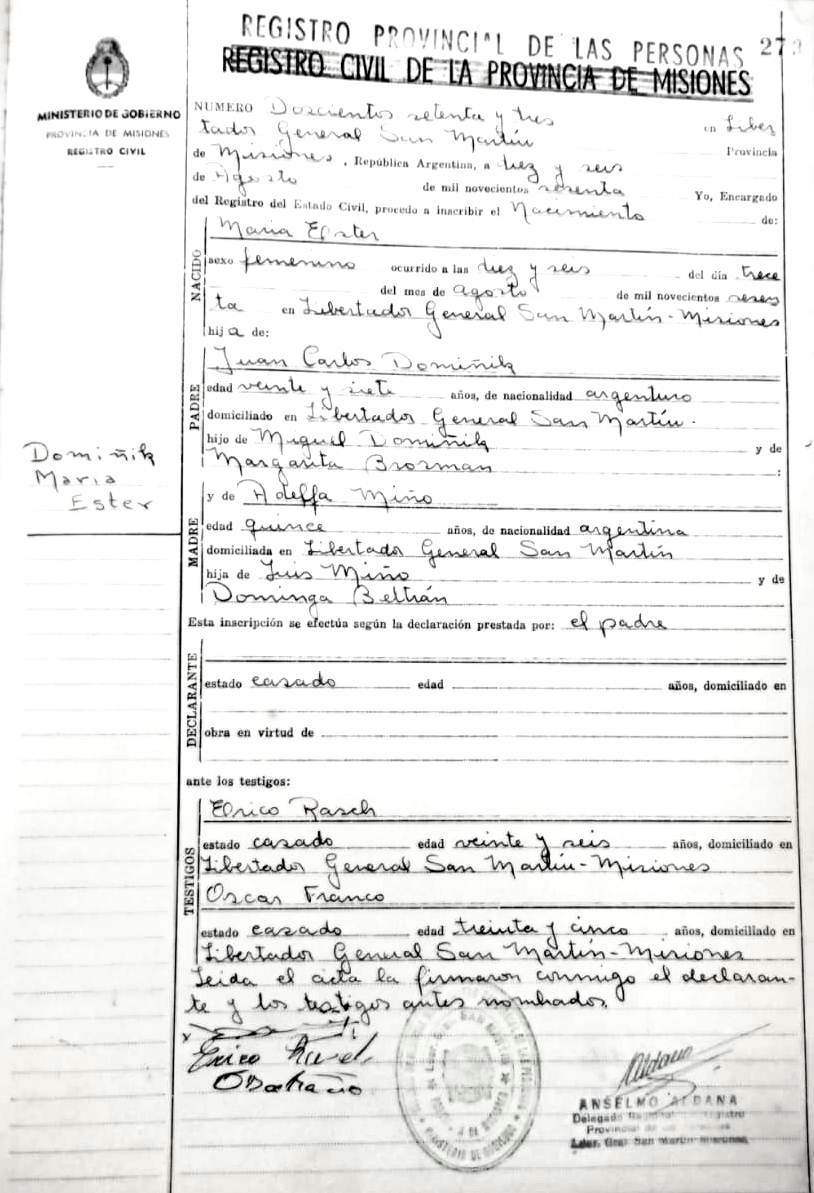 REGISTRO PROVINCIAL DE LAS PERSONAS 273
REGISTRO CIVIL DE LA PROVINCIA DE MISIONES
MINISTERIO DE GOBIERNO
PROVINCIA DE MISIONES
REGISTRO CIVIL
NUMERO Doscientos setenta y tres en Liber
tador General San Martín Provincia
de Misiones, República Argentina, a diez y seis
de Agosto de mil novecientos sesenta Yo, Encargado
del Registro del Estado Civil, procedo a inscribir el Nacimiento de:
NACIDO
Maria Ester
sexo femenino ocurrido a las diez y seis del día trece
del mes de agosto de mil novecientos sesen
ta en Libertador General San Martín-Misiones
hija de:
PADRE
Juan Carlos Domiñik
edad veinte y siete años, de nacionalidad argentino
domiciliado en Libertador General San Martín.
hijo de Miguel Domiñik y de
Margarita Brozman :
Domiñik
Maria
Ester
MADRE
y de Adelfa Miño
edad quince años, de nacionalidad argentina
domiciliada en Libertador General San Martín
hija de Luis Miño y de
Dominga Beltrán
Esta inscripción se efectúa según la declaración prestada por: el padre
DECLARANTE
estado casado edad años, domiciliado en
obra en virtud de
ante los testigos:
TESTIGOS
Erico Rasch
estado casado edad veinte y seis años, domiciliado en
Libertador General San Martín-Misiones
Oscar Franco
estado casado edad treinta y cinco años, domiciliado en
Libertador General San Martín-Misiones
Leida el acta la firmaron conmigo el declaran-
te y los testigos antes nombrados.
Erico
Aldana
ANSELMO ALDANA
Delegado Registro
Provincial de
Gral San Martin-Misiones